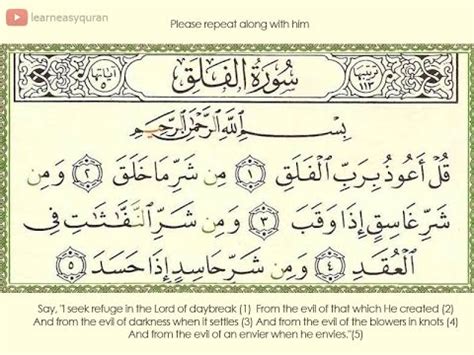 learneasyquran
Please repeat along with him
ترتيبها ١١٣ سُورَةُ الْفَلَقِ آياتها ٥
بِسْمِ اللَّهِ الرَّحْمَٰنِ الرَّحِيمِ
قُلْ أَعُوذُ بِرَبِّ الْفَلَقِ ١ مِن شَرِّ مَا خَلَقَ ٢ وَمِن
شَرِّ غَاسِقٍ إِذَا وَقَبَ ٣ وَمِن شَرِّ النَّفَّاثَاتِ فِي
الْعُقَدِ ٤ وَمِن شَرِّ حَاسِدٍ إِذَا حَسَدَ ٥
Say, "I seek refuge in the Lord of daybreak (1) From the evil of that which He created (2)
And from the evil of darkness when it settles (3) And from the evil of the blowers in knots (4)
And from the evil of an envier when he envies."(5)